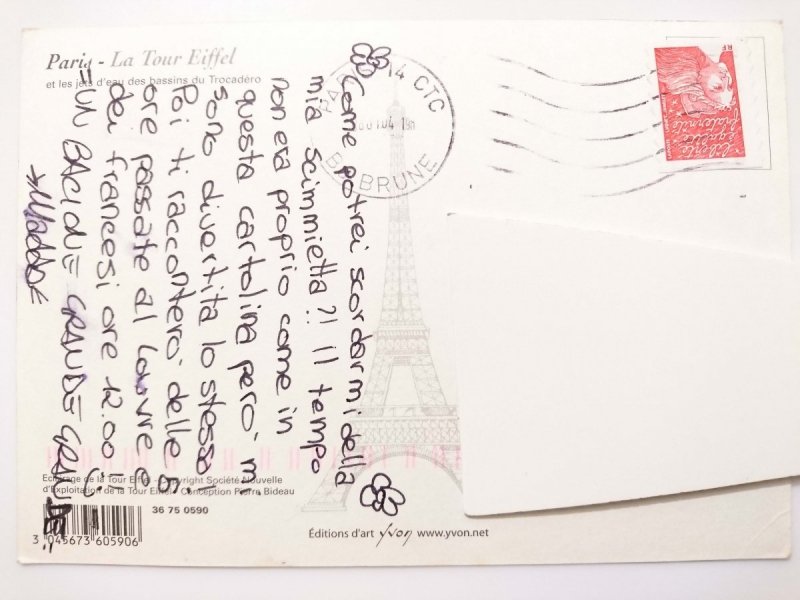 Paris - La Tour Eiffel
et les jets d'eau des bassins du Trocadéro
Come potrei scordarmi della
mia scimmietta?! il tempo
non era proprio come in
questa cartolina però mi
sono divertita lo stesso!
Poi ti racconterò delle 6
ore passate al Louvre e
dei francesi ore 12.00!!
UN BACIONE GRANDE GRANDE
14 CTC
BRUNE
RF
liberté
égalité
fraternité
Eclairage de la Tour Eiffel - Copyright Société Nouvelle
d'Exploitation de la Tour Eiffel - Conception Pierre Bideau
36 75 0590
3 045673 605906
Éditions d'art yvon www.yvon.net